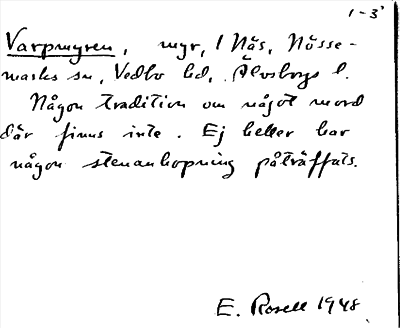 1-3'
Varpmyren, myr, / Näs, Nösse-
marks sn, Vedbo hd, Älvsborgs l.
Någon tradition om något mord
där finns inte. Ej heller har
någon stenanhopning påträffats.
E. Rosell 1948